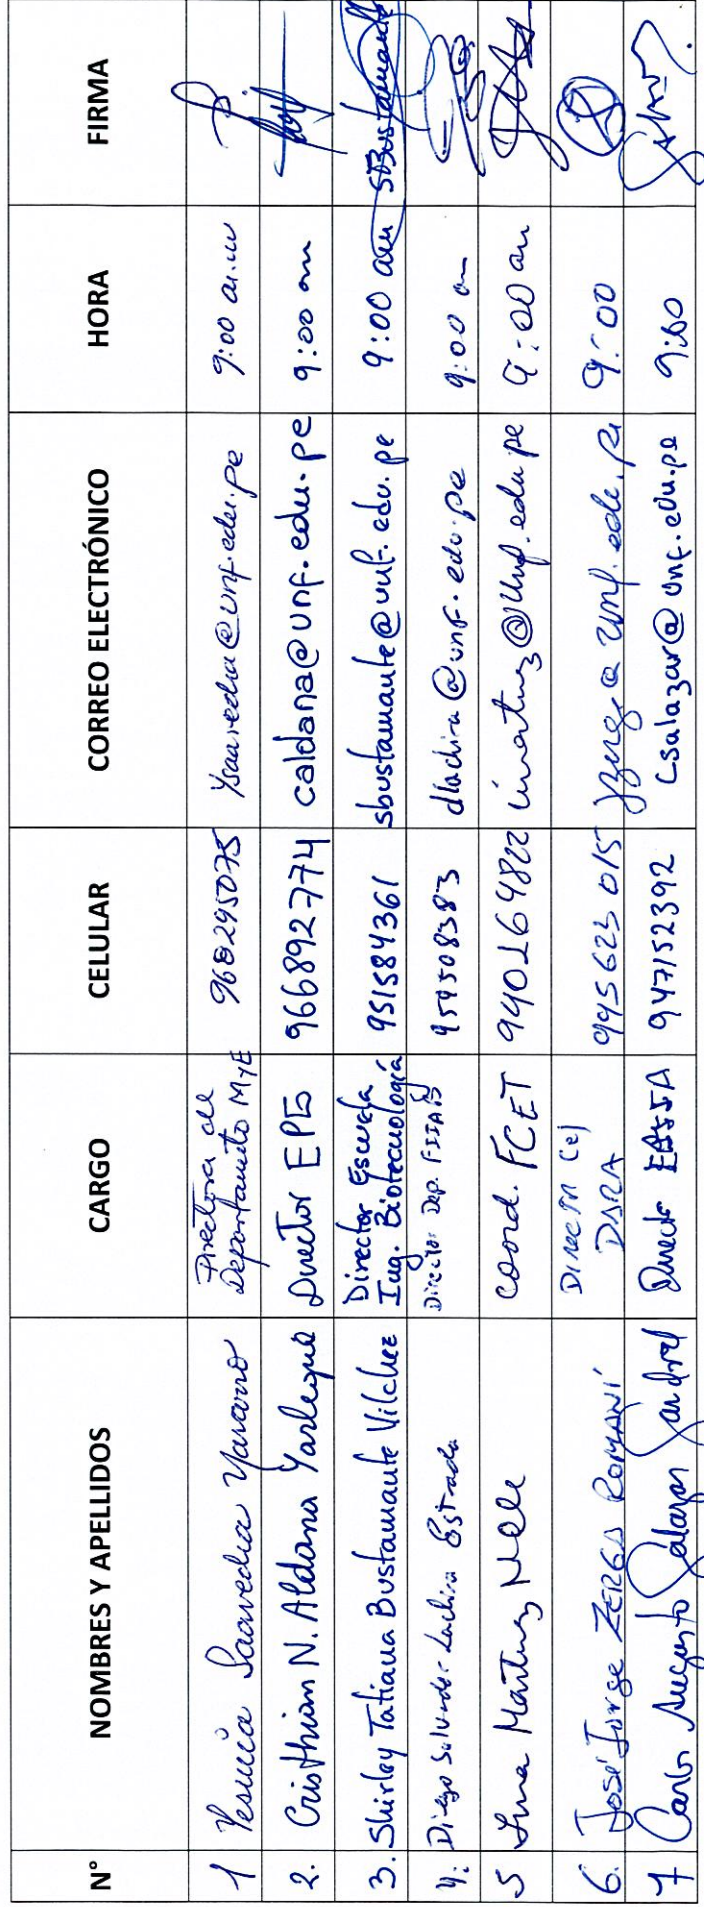 N° NOMBRES Y APELLIDOS CARGO CELULAR CORREO ELECTRÓNICO HORA FIRMA
1 Yesenia Saavedra Navarro Directora del Departamento MyE 968295075 ysaavedra@unf.edu.pe 9:00 a.m
2. Cristhian N. Aldana Yarlequé Director EPE 966892774 caldana@unf.edu.pe 9:00 am
3. Shirley Tatiana Bustamante Vilchez Director Escuela Ing. Biotecnología 951584361 sbustamante@unf.edu.pe 9:00 am SBustamante
4. Diego Salvador Lachira Estrada Director Dep. FIIAB dlachira@unf.edu.pe 9:00 am
5 Martínez coord. FCET 940164822 @unf.edu.pe 9:00 am
6. José Jorge ZERGA ROMANÍ DIRECTOR (e) DARA 945623015 jzerga@unf.edu.pe 9:00
7 Carlos Augusto Salazar Sandoval 947152392 csalazar@unf.edu.pe 9:00